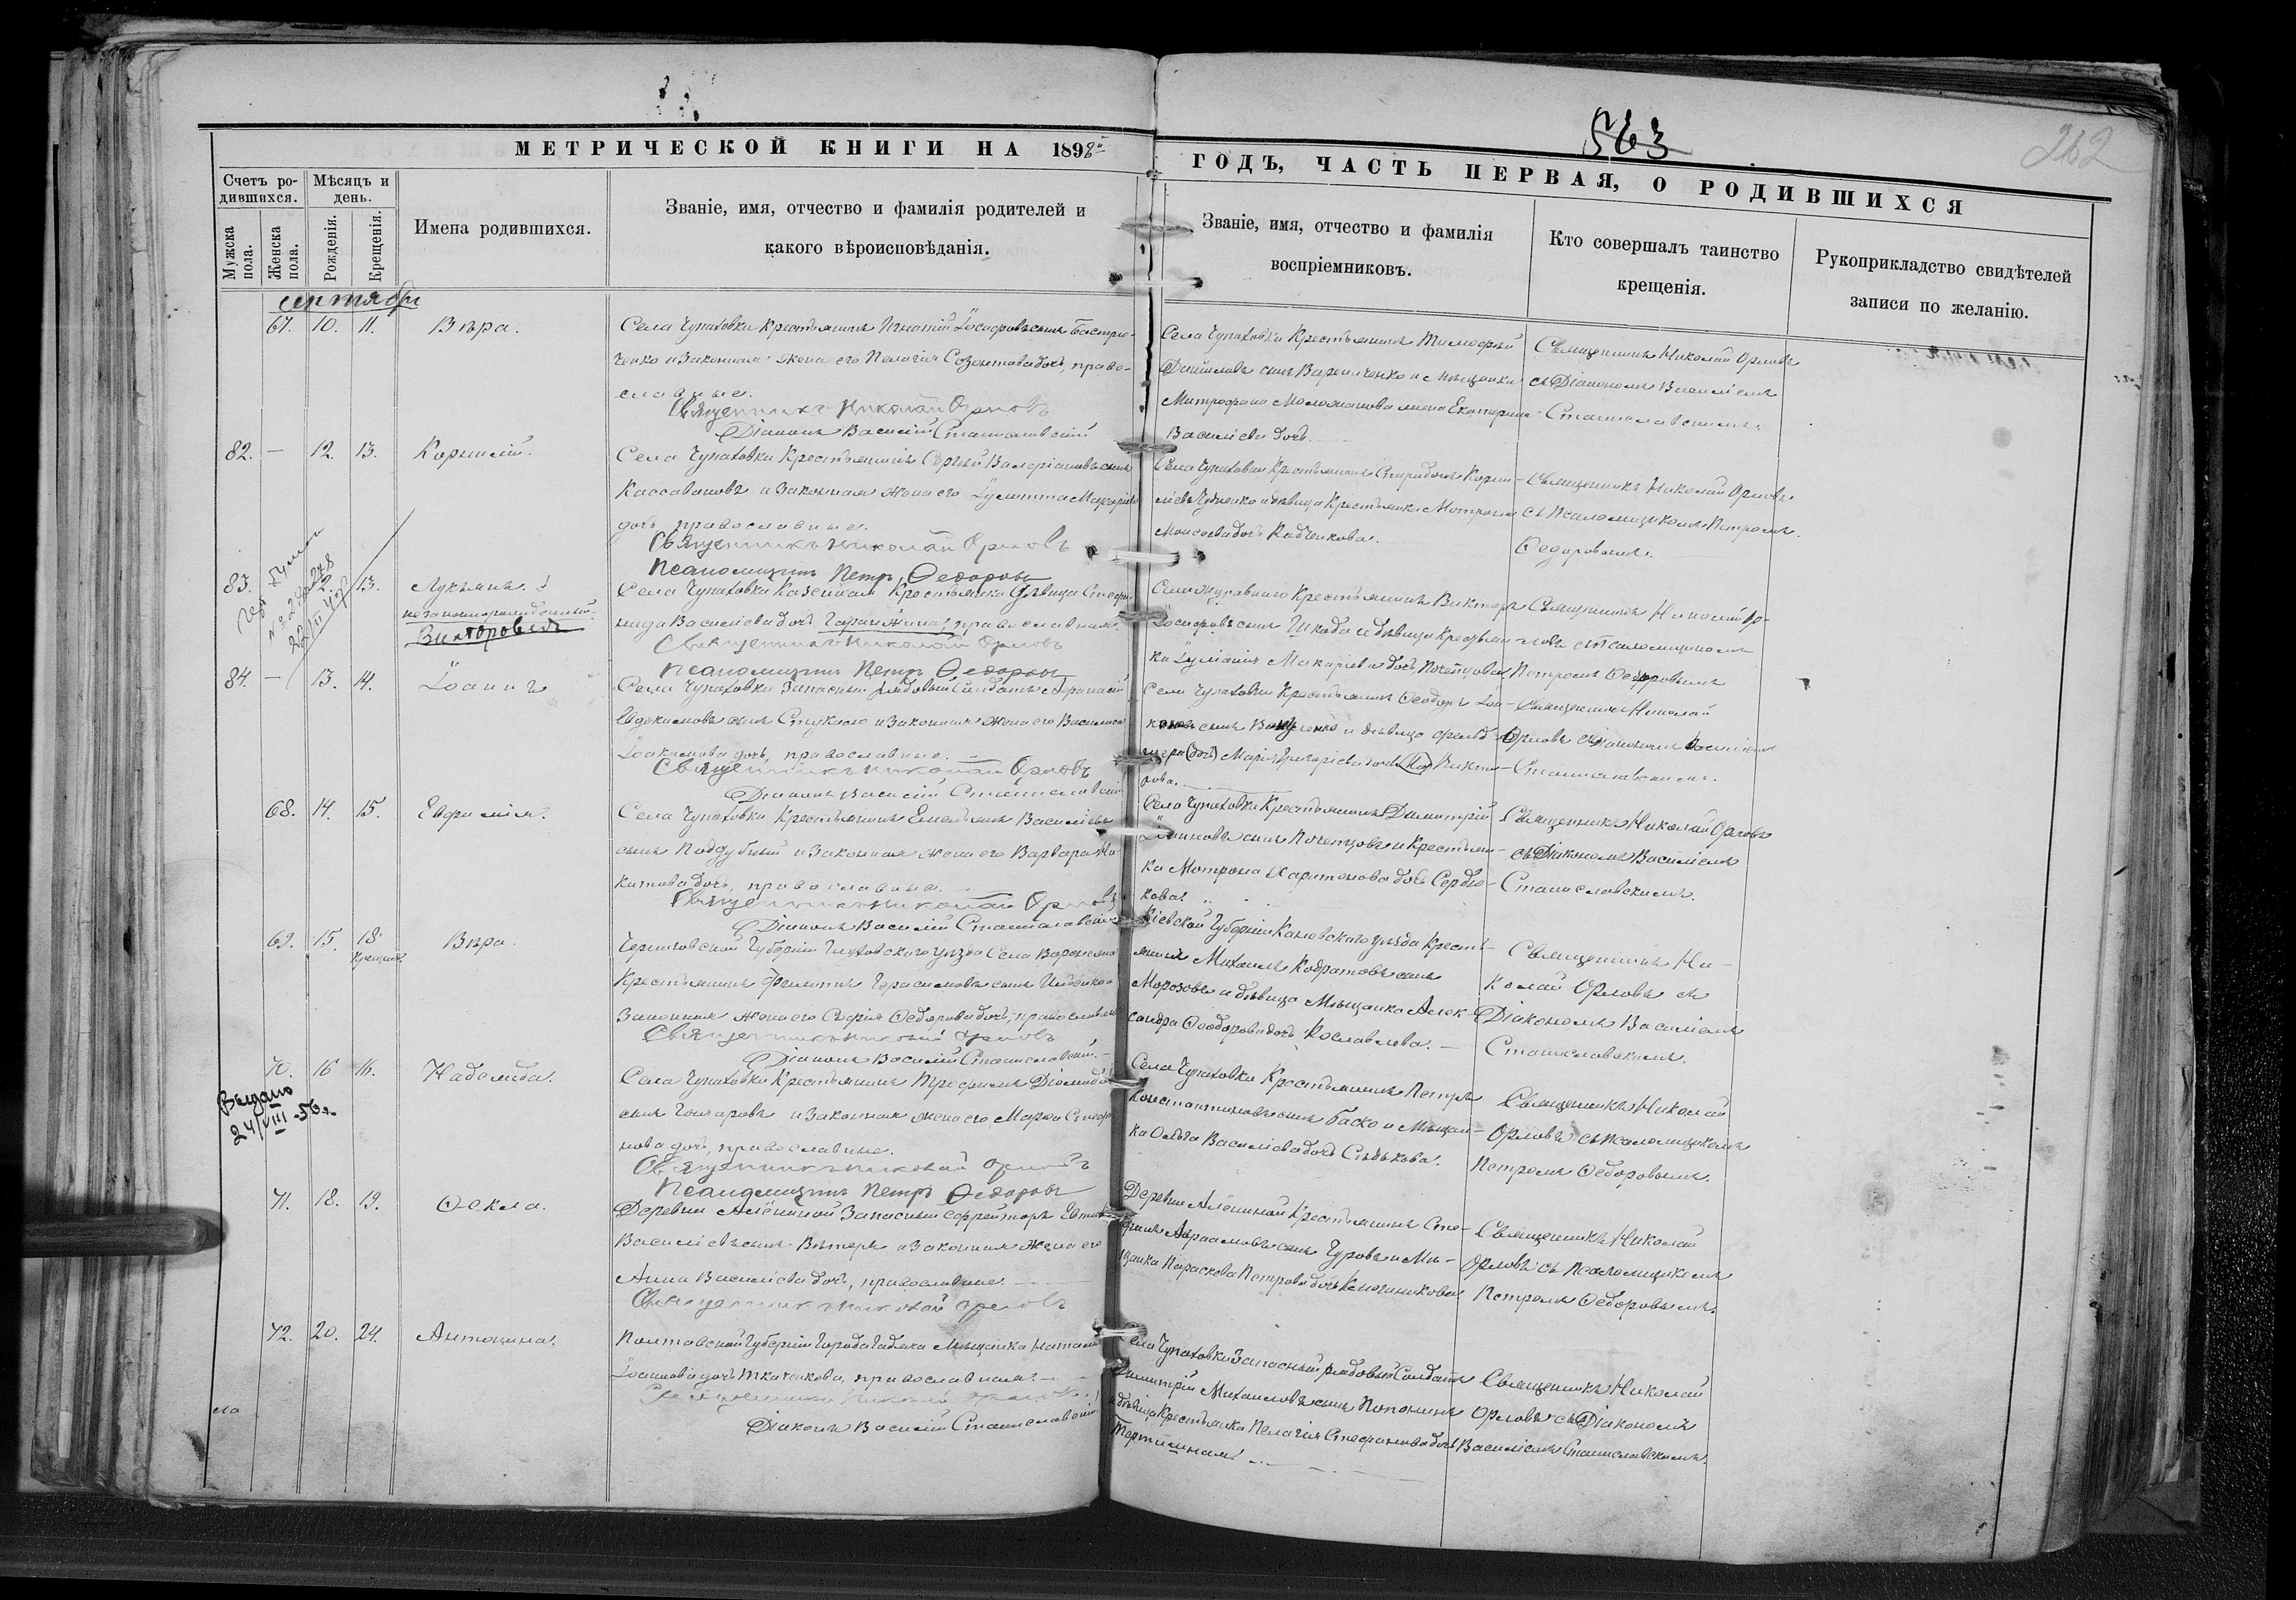 563
262
МЕТРИЧЕСКОЙ КНИГИ НА 1898й
ГОДЪ, ЧАСТЬ ПЕРВАЯ, О РОДИВШИХСЯ
Счетъ ро-
дившихся.
Мѣсяцъ и
день.
Мужска
пола.
Женска
пола.
Рожденія.
Крещенія.
Имена родившихся.
Званіе, имя, отчество и фамилія родителей и
какого вѣроисповѣданія.
Званіе, имя, отчество и фамилія
воспріемниковъ.
Кто совершалъ таинство
крещенія.
Рукоприкладство свидѣтелей
записи по желанію.
сентябрь
67. 10. 11. Вѣра.
Села Чупаховки крестьянинъ Игнатій Іосифовъ сынъ
ченко и законная жена его Пелагія Созонтова дочь, право-
славные.
Священникъ Николай Орловъ
Діаконъ Василій Станиславскій
Села Чупаховки Крестьянинъ Тимофей
Даніиловъ сынъ и мѣщанка
Митрофана жена Екатерина
Василіева дочь.
Священникъ Николай Орловъ
съ Діакономъ Василіемъ
Станиславскимъ.
82. — 12. 13. Корнилій.
Села Чупаховки Крестьянинъ Сергѣй Валеріановъ сынъ
Кассавановъ и законная жена его Іулитта Макаріева
дочь, православные.
Священникъ Николай Орловъ
Псаломщикъ Петръ Федоровъ
Села Чупаховки Крестьянинъ Спиридонъ Корни-
ліевъ и дѣвица Крестьянка Матрона
Моисеева дочь Радченкова.
Священникъ Николай Орловъ
съ Псаломщикомъ Петромъ
Федоровымъ.
83. 12. 13. Лукьянъ.
незаконнорожденный
Викторовичъ
Села Чупаховки Казенная Крестьянка Дѣвица Стефа-
нида Василіева дочь православная.
Священникъ Николай Орловъ
Псаломщикъ Петръ Федоровъ
Села Журавного Крестьянинъ Викторъ
Іосифовъ сынъ Шкода и дѣвица Крестьян-
ка Іуліанія Макаріева дочь Почетцова
Священникъ Николай Ор-
ловъ съ Псаломщикомъ
Петромъ Федоровымъ
84. — 13. 14. Іоаннъ
Села Чупаховки Запасный рядовый Солдатъ Афанасій
Евдокимовъ сынъ и законная жена его Василиса
Іоакимова дочь, православные.
Священникъ Николай Орловъ
Діаконъ Василій Станиславскій
Села Чупаховки Крестьянинъ Феодоръ Іоа-
нновъ сынъ и дѣвица фельд-
шера (дочь) Марія Григоріева дочь Викто-
рова.
Священникъ Николай
Орловъ съ Діакономъ Василіемъ
Станиславскимъ.
68. 14. 15. Евфимія.
Села Чупаховки Крестьянинъ Емельянъ Василіевъ
сынъ Поддубный и законная жена его Варвара Ни-
китова дочь, православные.
Священникъ Николай Орловъ
Діаконъ Василій Станиславскій
Села Чупаховки Крестьянинъ Димитрій
Іоанновъ сынъ Почетцовъ и Крестьян-
ка Матрона Харитонова дочь Сердю-
кова.
Священникъ Николай Орловъ
съ Діакономъ Василіемъ
Станиславскимъ.
69. 15. 18. Вѣра.
Черниговской Губерніи Глуховского уѣзда Села Воронежа
Крестьянинъ Филиппъ Герасимовъ сынъ и
законная жена его Софія Федорова дочь, православные
Священникъ Николай Орловъ
Діаконъ Василій Станиславскій.
Кіевской Губерніи Каневского уѣзда Кресть-
янинъ Михаилъ Кодратовъ сынъ
Морозовъ и дѣвица Мѣщанка Алек-
сандра Феодорова дочь Рославлева.
Священникъ Ни-
колай Орловъ съ
Діакономъ Василіемъ
Станиславскимъ.
70. 16 16. Надежда.
Выдано
24/VIII-56г.
Села Чупаховки Крестьянинъ Трофимъ Діомидовъ
сынъ Гончаровъ и законная жена его Марфа Стефа-
нова дочь, православные.
Священникъ Николай Орловъ
Псаломщикъ Петръ Федоровъ
Села Чупаховки Крестьянинъ Петръ
Константиновъ сынъ Баско и Мѣщан-
ка Ольга Василіева дочь Сѣдькова.
Священникъ Николай
Орловъ съ Псаломщикомъ
Петромъ Федоровымъ.
71. 18. 19. Фекла.
Деревни Алёниной Запасный ефрейторъ
Василіевъ сынъ Вѣтеръ и законная жена его
Анна Василіева дочь, православные.
Священникъ Николай Орловъ
Деревни Алёниной Крестьянинъ Сте-
фанъ Авраамовъ сынъ Чуровъ и Мѣ-
щанка Параскева Петрова дочь
Священникъ Николай
Орловъ съ Псаломщикомъ
Петромъ Федоровымъ.
72. 20. 24. Антонина.
Полтавской Губерніи Города Гадяча Мѣщанка Наталія
Іоаннова дочь Ткаченкова, православная.
Священникъ Николай Орловъ
Діаконъ Василій Станиславскій
Села Чупаховки Запасный рядовый Солдатъ
Димитрій Михаиловъ сынъ
и дѣвица Крестьянка Пелагія Стефанова дочь
Священникъ Николай
Орловъ съ Діакономъ
Василіемъ Станиславскимъ.